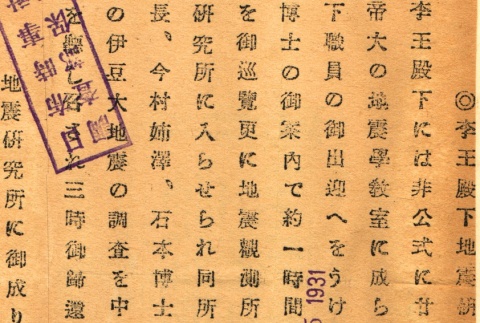 ◎李王殿下地震硏
李王殿下には非公式に廿
帝大の地震學教室に成ら
下職員の御出迎へをうけ
博士の御案内で約一時間
を御巡覽更に地震觀測所
硏究所に入らせられ同所
長、今村姉澤、石本博士
の伊豆大地震の調査を中
三時御歸還
地震硏究所に御成り
1931
日布時事
調査
保